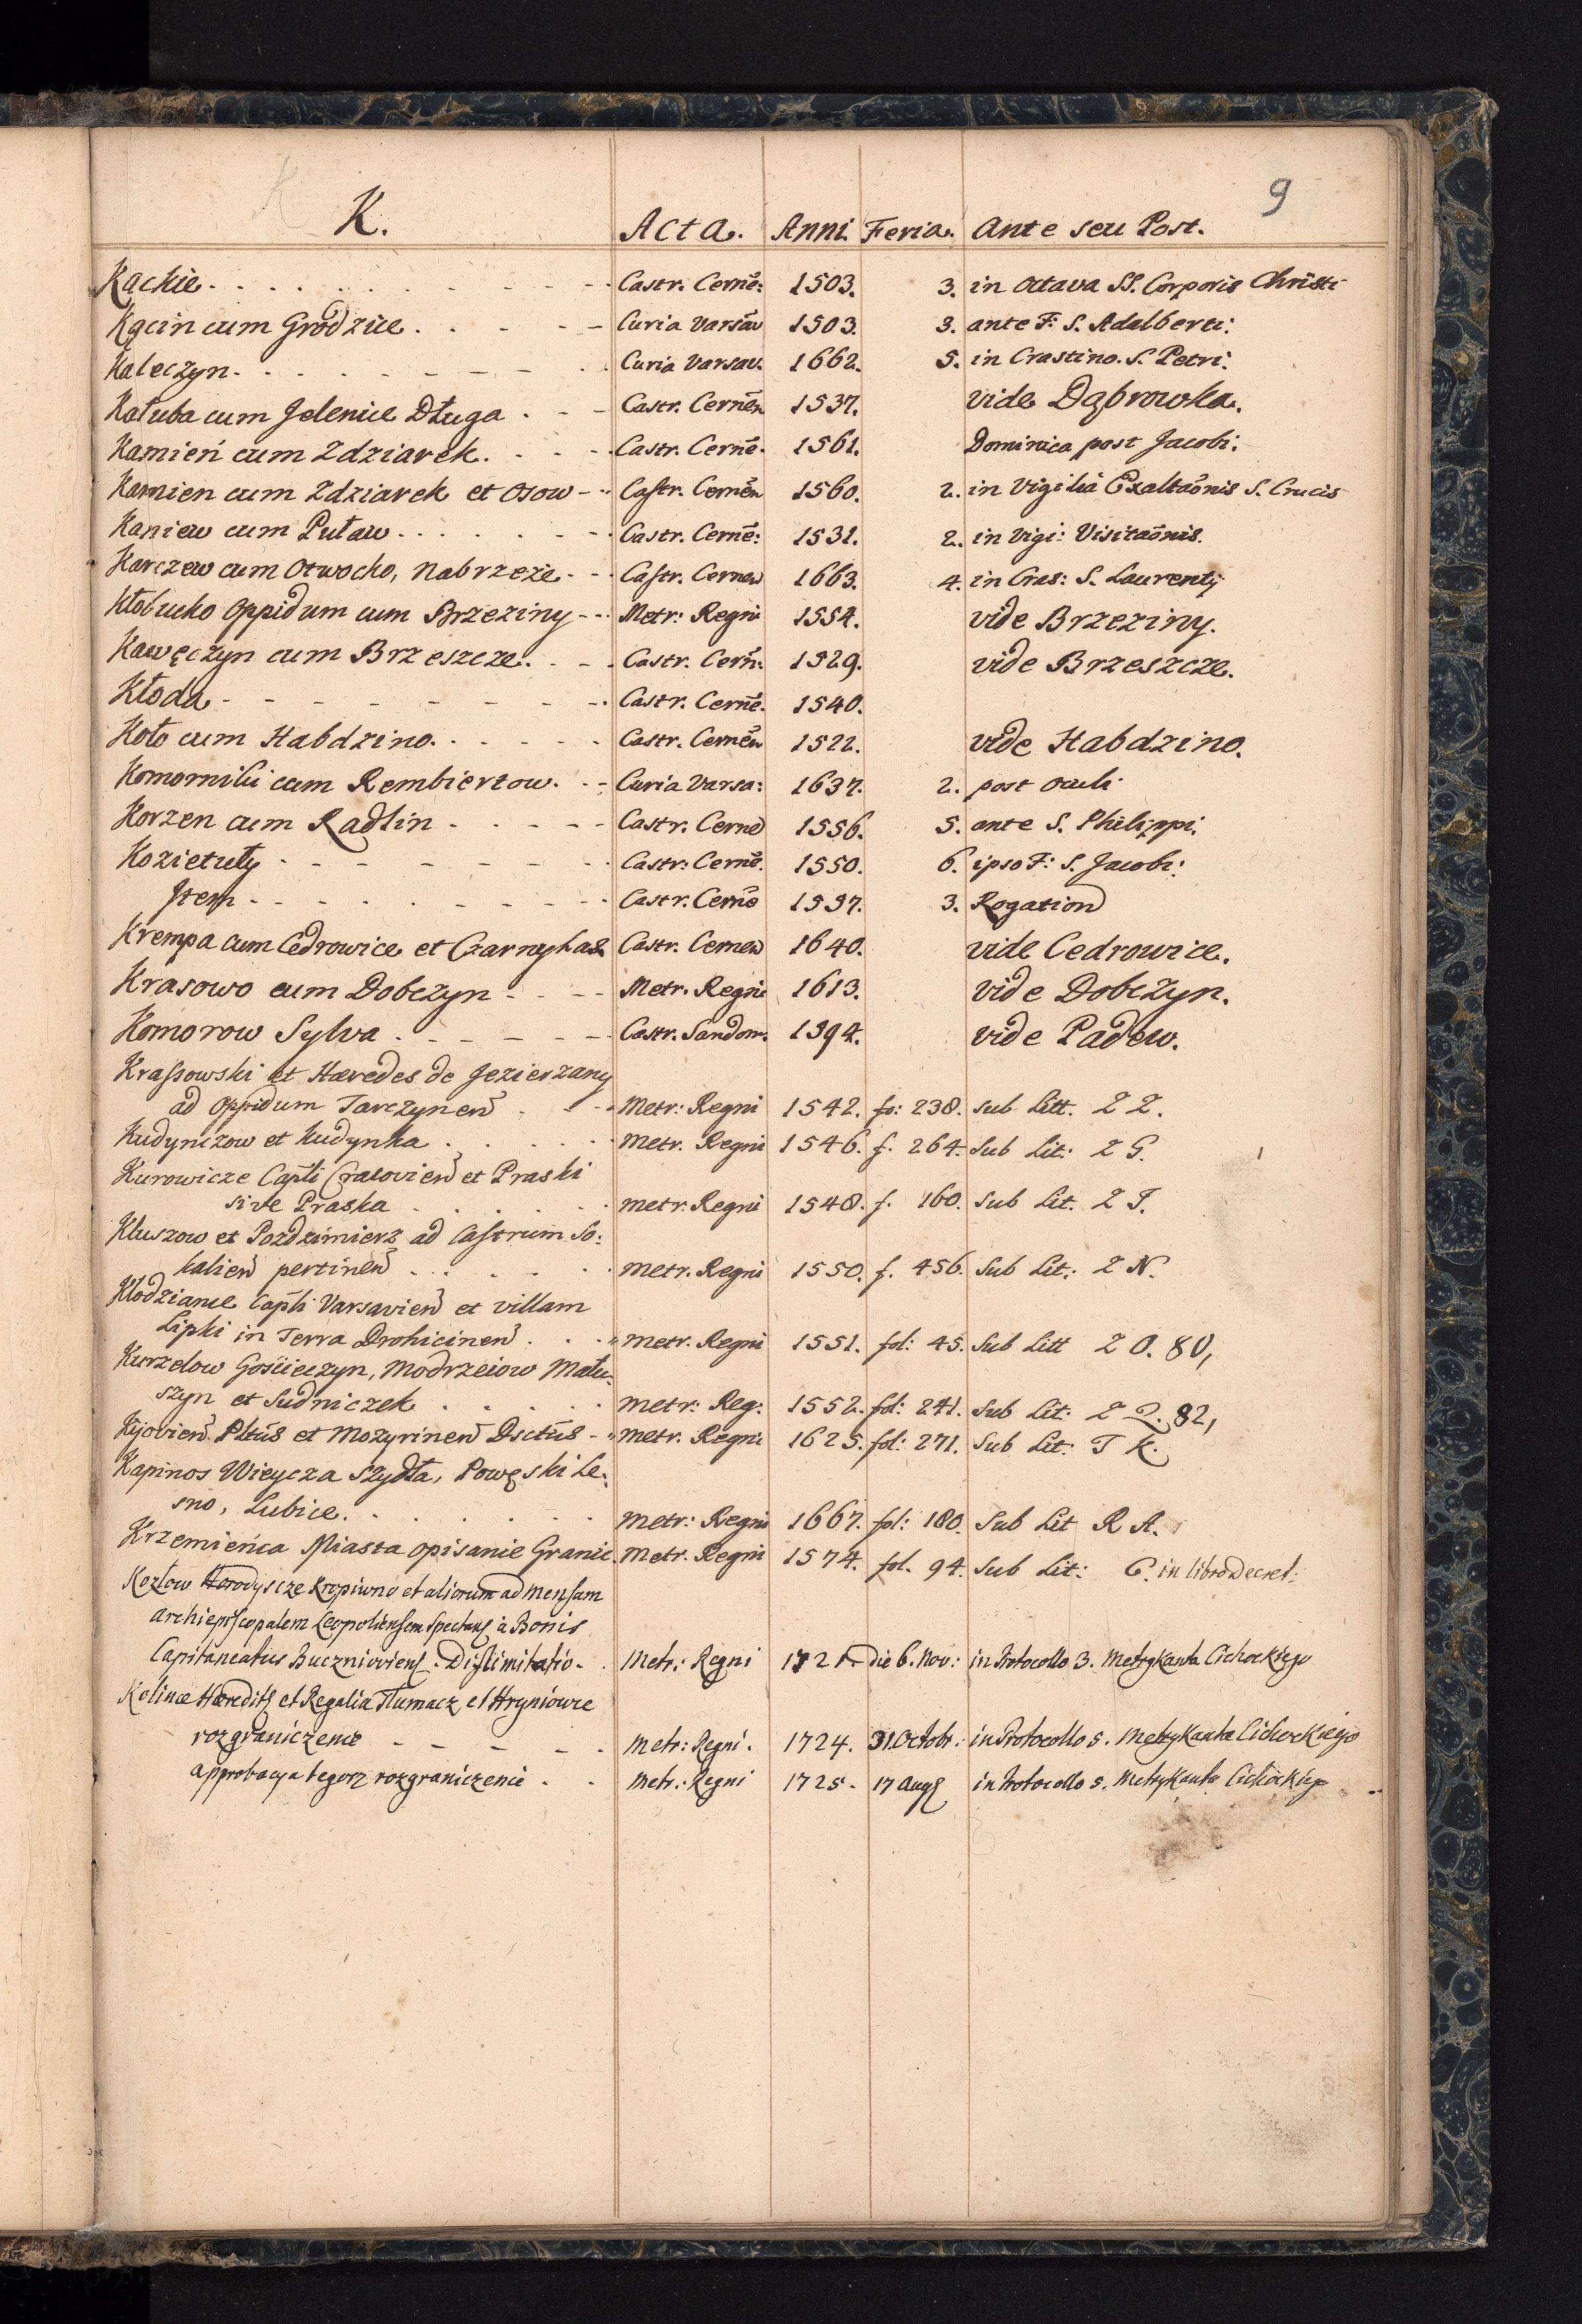 9
K. Acta. Anni. Feria. Ante seu Post.
Kąckie Castr. Cernē: 1503. 3. in Octava SS. Corporis Christi
Kącin cum Grodzice Curia Varsāv 1503. 3. ante F: S. Adalberti:
Kaleczyn Curia Varsav. 1662. 5. in Crastino. S. Petri:
Kałuba cum Jelenice Długa Castr. Cernēn 1537. vide Dąbrowka.
Kamień cum Zdziarek. Castr. Cernē. 1561. Dominica post Jacobi:
Kamien cum Zdziarek et Osow Castr. Cernēn 1560. 2. in Vigilia Exaltaōnis S. Crucis
Kaniew cum Puław Castr. Cernē: 1531. 2. in Vigi: Visitaōnis.
Karczew cum Otwocko, Nabrzeże Castr. Cernen 1663. 4. in Cras: S. Laurentij
Kłobucko Oppidum cum Brzeziny Metr: Regni 1554. vide Brzeziny.
Kawęczyn cum Brzeszcze. Castr. Cerñ: 1529. vide Brzeszcze.
Kłoda Castr. Cernē. 1540.
Koło cum Habdzino. Castr. Cernēn 1522. vide Habdzino.
Komorniki cum Rembiertow. Curia Varsa: 1637. 2. post Oculi
Korzen cum Radlin Castr. Cernen 1556. 5. ante S. Philippi.
Kozietuły Castr: Cernē. 1550. 6. ipso F: S. Jacobi:
Item Castr. Cernē 1537. 3. Rogation
Krempa cum Cedrowice et Czarnylas Castr. Cernen 1640. vide Cedrowice.
Krasowo cum Dobczyn Metr. Regni 1613. vide Dobczyn.
Komorow Sylva Castr. Sandom. 1594. vide Padew.
Krassowski et Hæredes de Jezierzany
ad Oppidum Tarczynen Metr: Regni 1542. fo: 238. Sub Litt. Z Z.
Kudynczow et Kudynka Metr. Regni 1546. f. 264. Sub Lit: Z G.
Kurowicze Capti Cracovien et Praski
sive Praska Metr. Regni 1548. f. 160. Sub Lit. Z J.
Kluszow et Pozdzimierz ad Castrum So:
kalien pertinen Metr. Regni 1550. f. 456. Sub Lit: Z N.
Kłodzianie Capti Varsavien et villam
Lipki in Terra Drohicinen Metr. Regni 1551. fol: 45. Sub Litt Z O. 80,
Kurzelow Gościeczyn, Modrzeiow Matu:
szyn et Sudniczek Metr: Reg: 1552. fol: 241. Sub Lit: Z Q. 82,
Kijovien. Pltūs et Mozyrinen Dsctūs Metr. Regni 1625. fol: 271. Sub Lit: T K.
Kapinos Wieycza Szydła, Powęski Le:
sno, Lubice. Metr: Regni 1667. fol: 180. Sub Lit R A.
Krzemieńca Miasta opisanie Granic. Metr. Regni 1574. fol. 94. Sub Lit: C. in libro Decret:
Kozłow Horodyscze Kropiwno et aliorum ad Mensam
Archiepiscopalem Leopoliensem Spectans à Bonis
Capitaneatus Bucznioviens. Dislimitatio. Metr: Regni 1721. die 6. Nov: in Protocollo 3. Metrykanta Cichockiego
Kolince Hæredits et Regalia Tłumacz et Hryniowce
rozgraniczenie Metr: Regni. 1724. 31. Octobr: in Protocollo 5. Metrykanta Cichockiego
approbacya tegorz rozgraniczenie Metr: Regni 1725. 17 Augs in Protocollo 5. Metrykanta Cichockiego